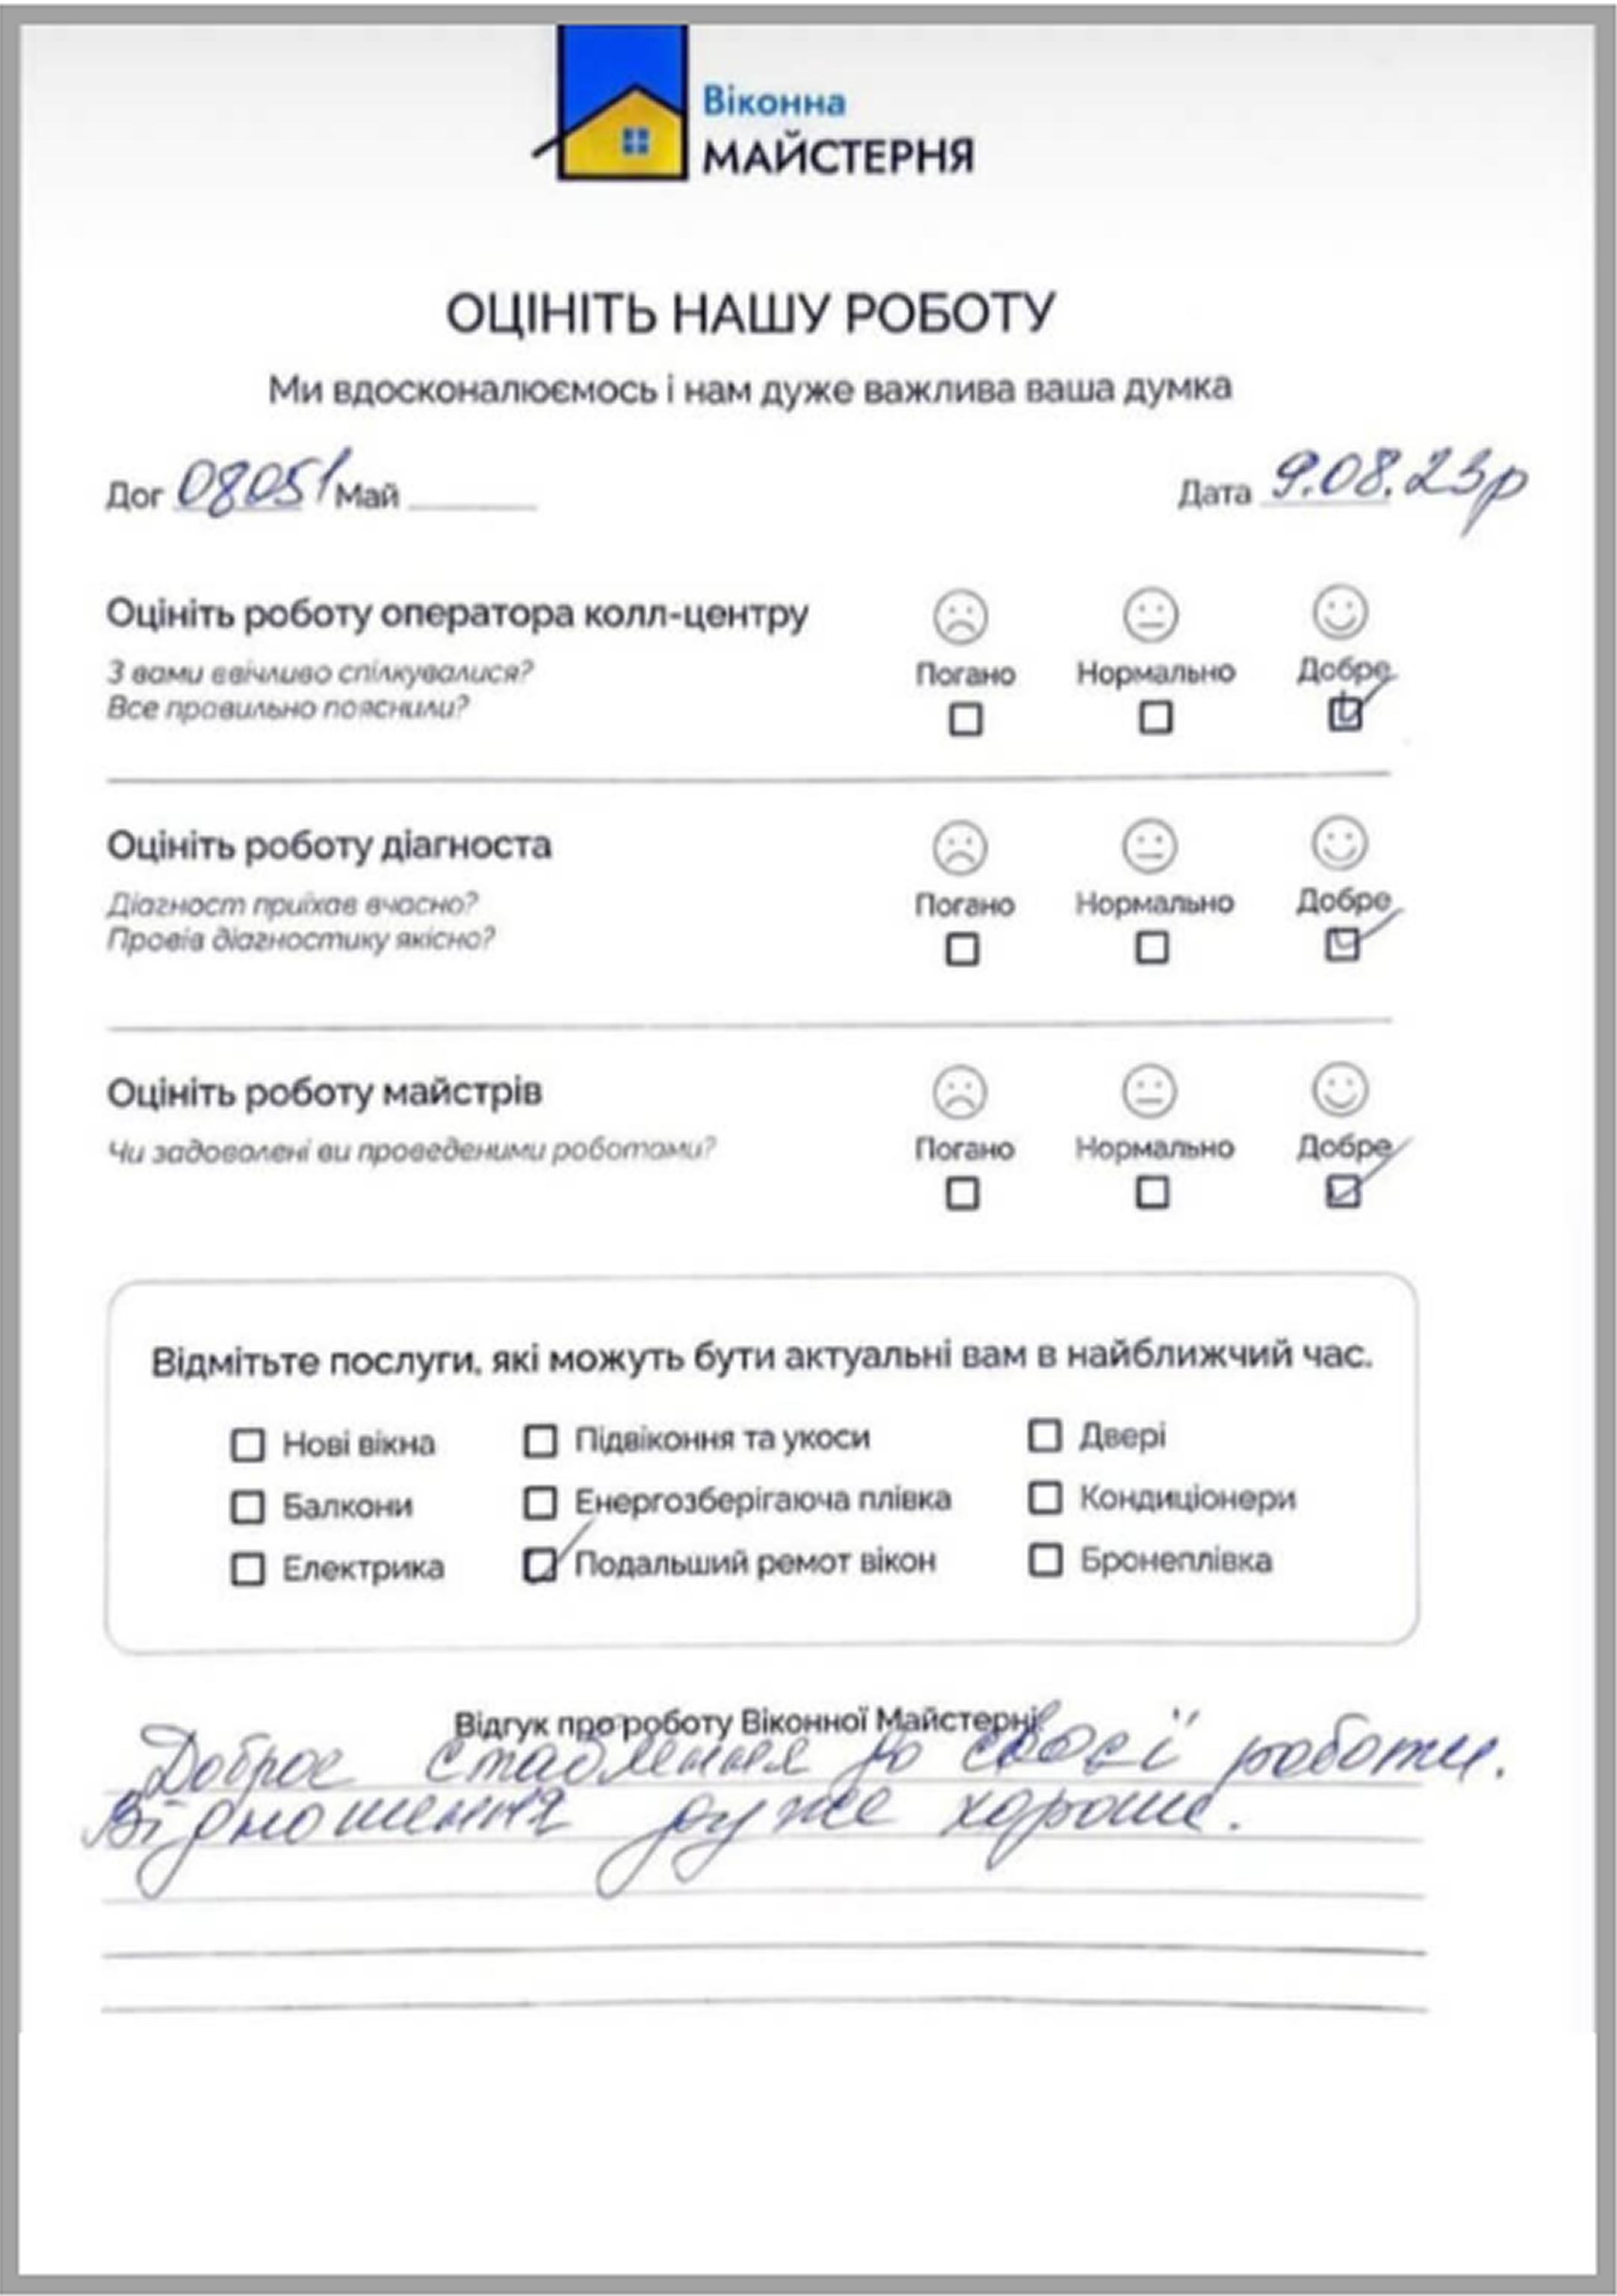 Віконна
МАЙСТЕРНЯ
ОЦІНІТЬ НАШУ РОБОТУ
Ми вдосконалюємось і нам дуже важлива ваша думка
Дог 08051 Май Дата 9.08.23р
Оцініть роботу оператора колл-центру
З вами ввічливо спілкувалися?
Все правильно пояснили?
Погано Нормально Добре
Оцініть роботу діагноста
Діагност приїхав вчасно?
Провів діагностику якісно?
Погано Нормально Добре
Оцініть роботу майстрів
Чи задоволені ви проведеними роботами?
Погано Нормально Добре
Відмітьте послуги, які можуть бути актуальні вам в найближчий час.
Нові вікна Підвіконня та укоси Двері
Балкони Енергозберігаюча плівка Кондиціонери
Електрика Подальший ремот вікон Бронеплівка
Відгук про роботу Віконної Майстерні
Доброе ставлення до своєї роботи.
Відношення дуже хороше.